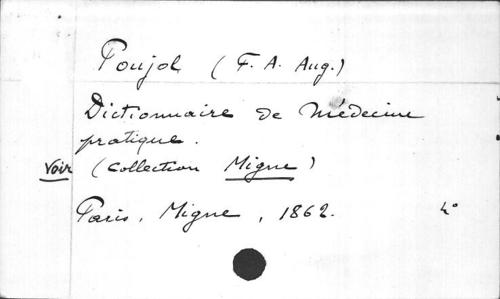 Poujol (F. A. Aug.)
Dictionnaire de Médecine
pratique.
Voir (Collection Migne)
Paris, Migne, 1862. 4°